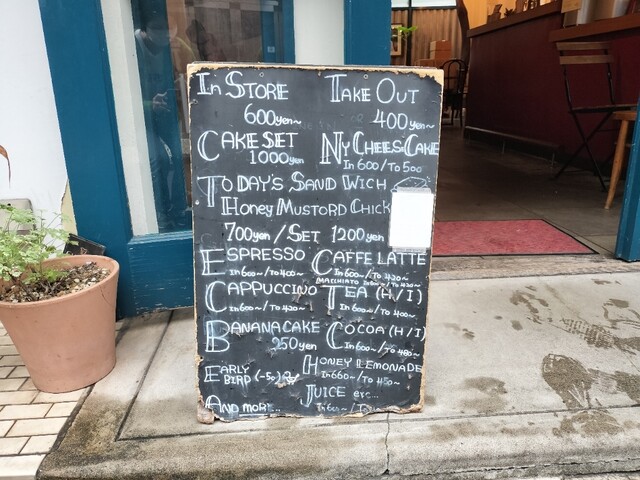 In Store Take Out
600yen~ 400yen~
Cake Set Ny CheeseCake
1000yen In 600/To 500
Today's Sand Wich
Honey Mustord Chick
700yen / Set 1200yen
Espresso Caffe Latte
In 600~/To 400~ In 600~/To 420~
Macchiato In 600~/To 420~
Cappuccino Tea (H/I)
In 600~/To 420~ In 600~/To 400~
Banana Cake Cocoa (H/I)
250yen In 600~/To 480~
Early Bird (-50) Honey Lemonade
In 660~/To 450~
Juice etc...
And more.. In 600~/To